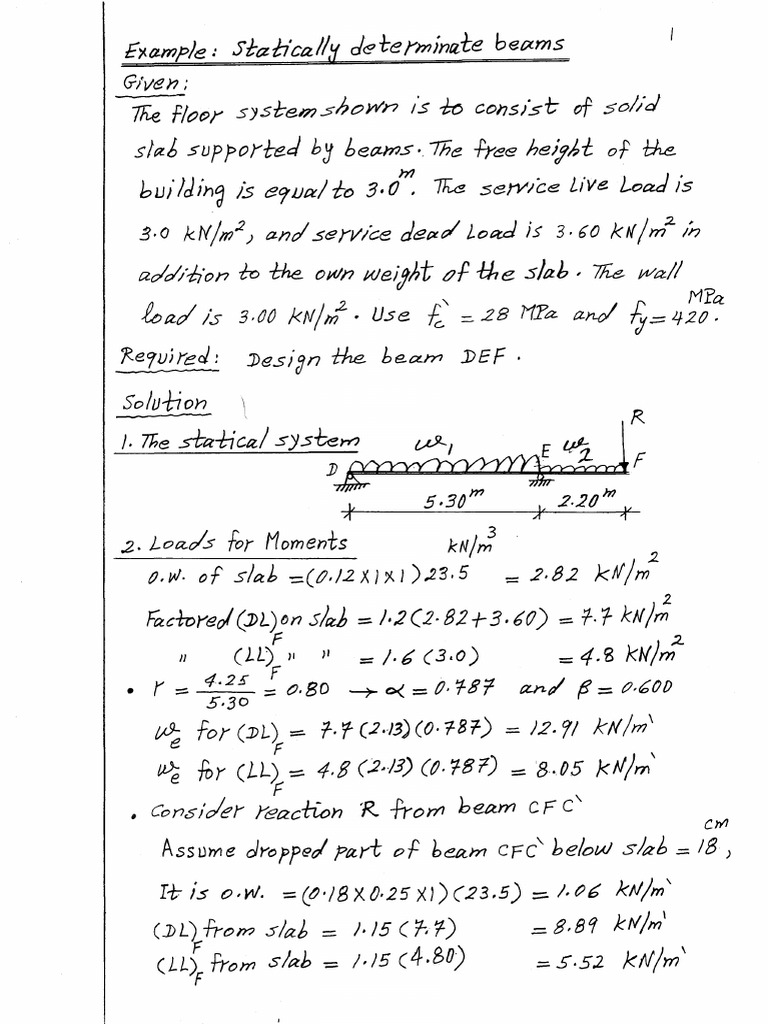 1
Example: Statically determinate beams
Given:
The floor system shown is to consist of solid
slab supported by beams. The free height of the
building is equal to 3.0m. The service Live Load is
3.0 kN/m², and service dead Load is 3.60 kN/m² in
addition to the own weight of the slab. The wall
load is 3.00 kN/m². Use fc` = 28 MPa and fy = 420 MPa.
Required: Design the beam DEF.
Solution
1. The statical system
w1 E w2 R
D F
5.30m 2.20m
2. Loads for Moments kN/m³
o.w. of slab = (0.12x1x1)23.5 = 2.82 kN/m²
Factored (DL)F on slab = 1.2(2.82+3.60) = 7.7 kN/m²
" (LL)F " " = 1.6 (3.0) = 4.8 kN/m²
• r = 4.25/5.30 = 0.80 → α = 0.787 and β = 0.600
we for (DL)F = 7.7(2.13)(0.787) = 12.91 kN/m`
we for (LL)F = 4.8(2.13)(0.787) = 8.05 kN/m`
• Consider reaction R from beam CFC`
Assume dropped part of beam CFC` below slab = 18 cm,
It is o.w. = (0.18x0.25x1)(23.5) = 1.06 kN/m`
(DL)F from slab = 1.15 (7.7) = 8.89 kN/m`
(LL)F from slab = 1.15 (4.80) = 5.52 kN/m`